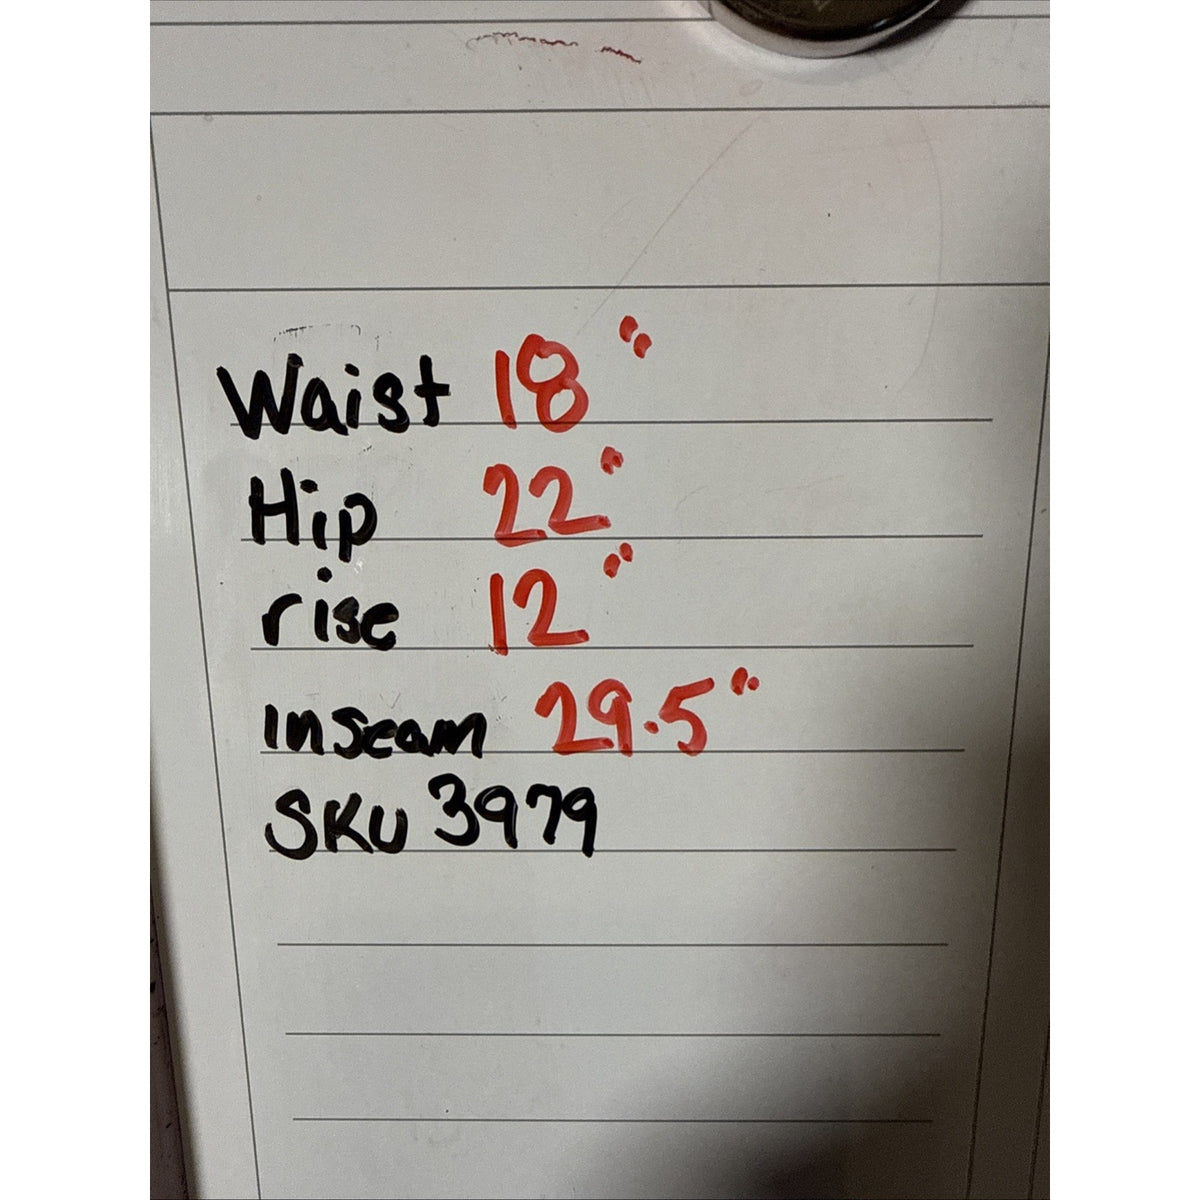 Waist 18"
Hip 22"
rise 12"
inseam 29.5"
SKU 3979